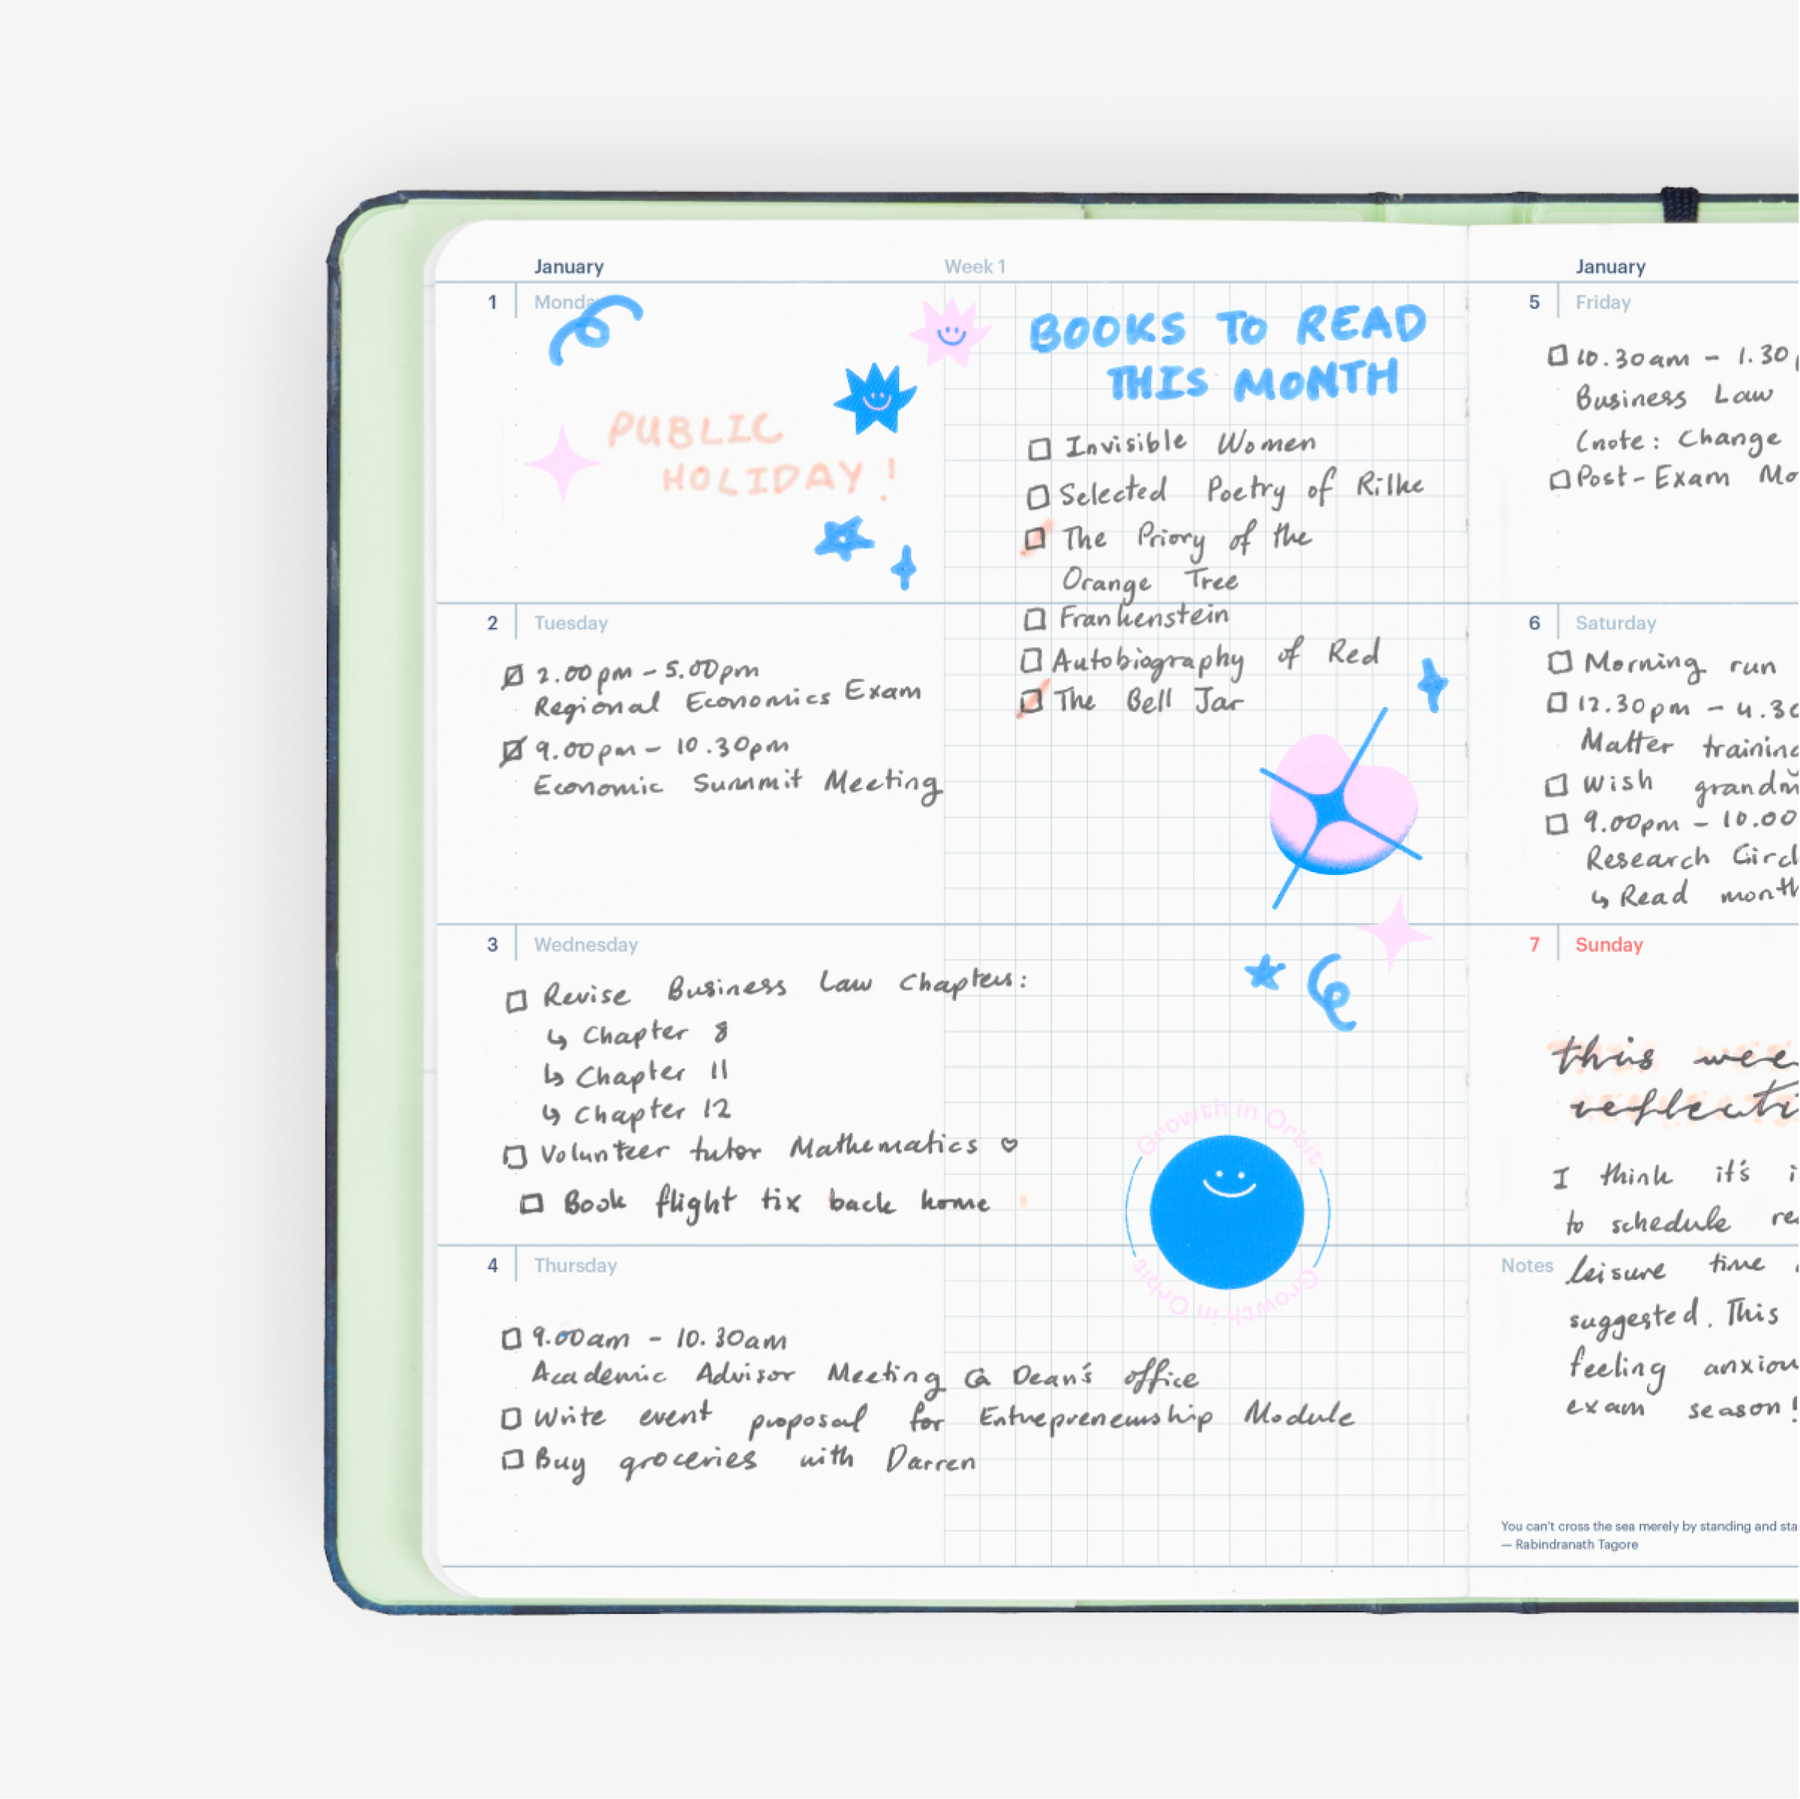 January
Week 1
1 Monda
PUBLIC
HOLIDAY!
BOOKS TO READ
THIS MONTH
Invisible Women
Selected Poetry of Rilke
The Priory of the
Orange Tree
Frankenstein
Autobiography of Red
The Bell Jar
2 Tuesday
2.00pm - 5.00pm
Regional Economics Exam
9.00pm - 10.30pm
Economic Summit Meeting
3 Wednesday
Revise Business Law Chapters:
↳ Chapter 8
↳ Chapter 11
↳ Chapter 12
Volunteer tutor Mathematics ♡
Book flight tix back home
Growth in Orbit
Growth in Orbit
4 Thursday
9.00am - 10.30am
Academic Advisor Meeting @ Dean's office
Write event proposal for Entrepreneurship Module
Buy groceries with Darren
January
5 Friday
10.30am - 1.30
Business Law
(note: Change
Post-Exam Mo
6 Saturday
Morning run
12.30pm - 4.30
Matter training
Wish grandm
9.00pm - 10.00
Research Circl
↳ Read month
7 Sunday
this wee
reflecti
I think it's i
to schedule re
Notes
leisure time
suggested. This
feeling anxiou
exam season!
You can't cross the sea merely by standing and sta
— Rabindranath Tagore